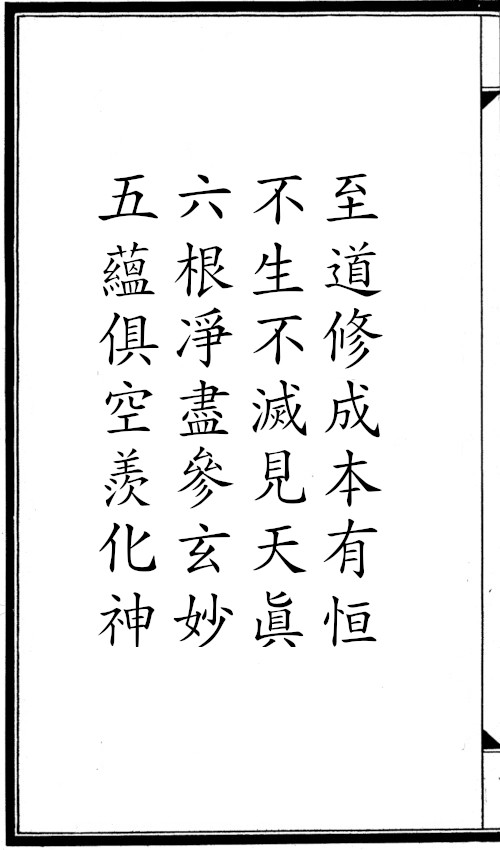 至道修成本有恒
不生不滅見天眞
六根凈盡參玄妙
五蘊俱空羨化神